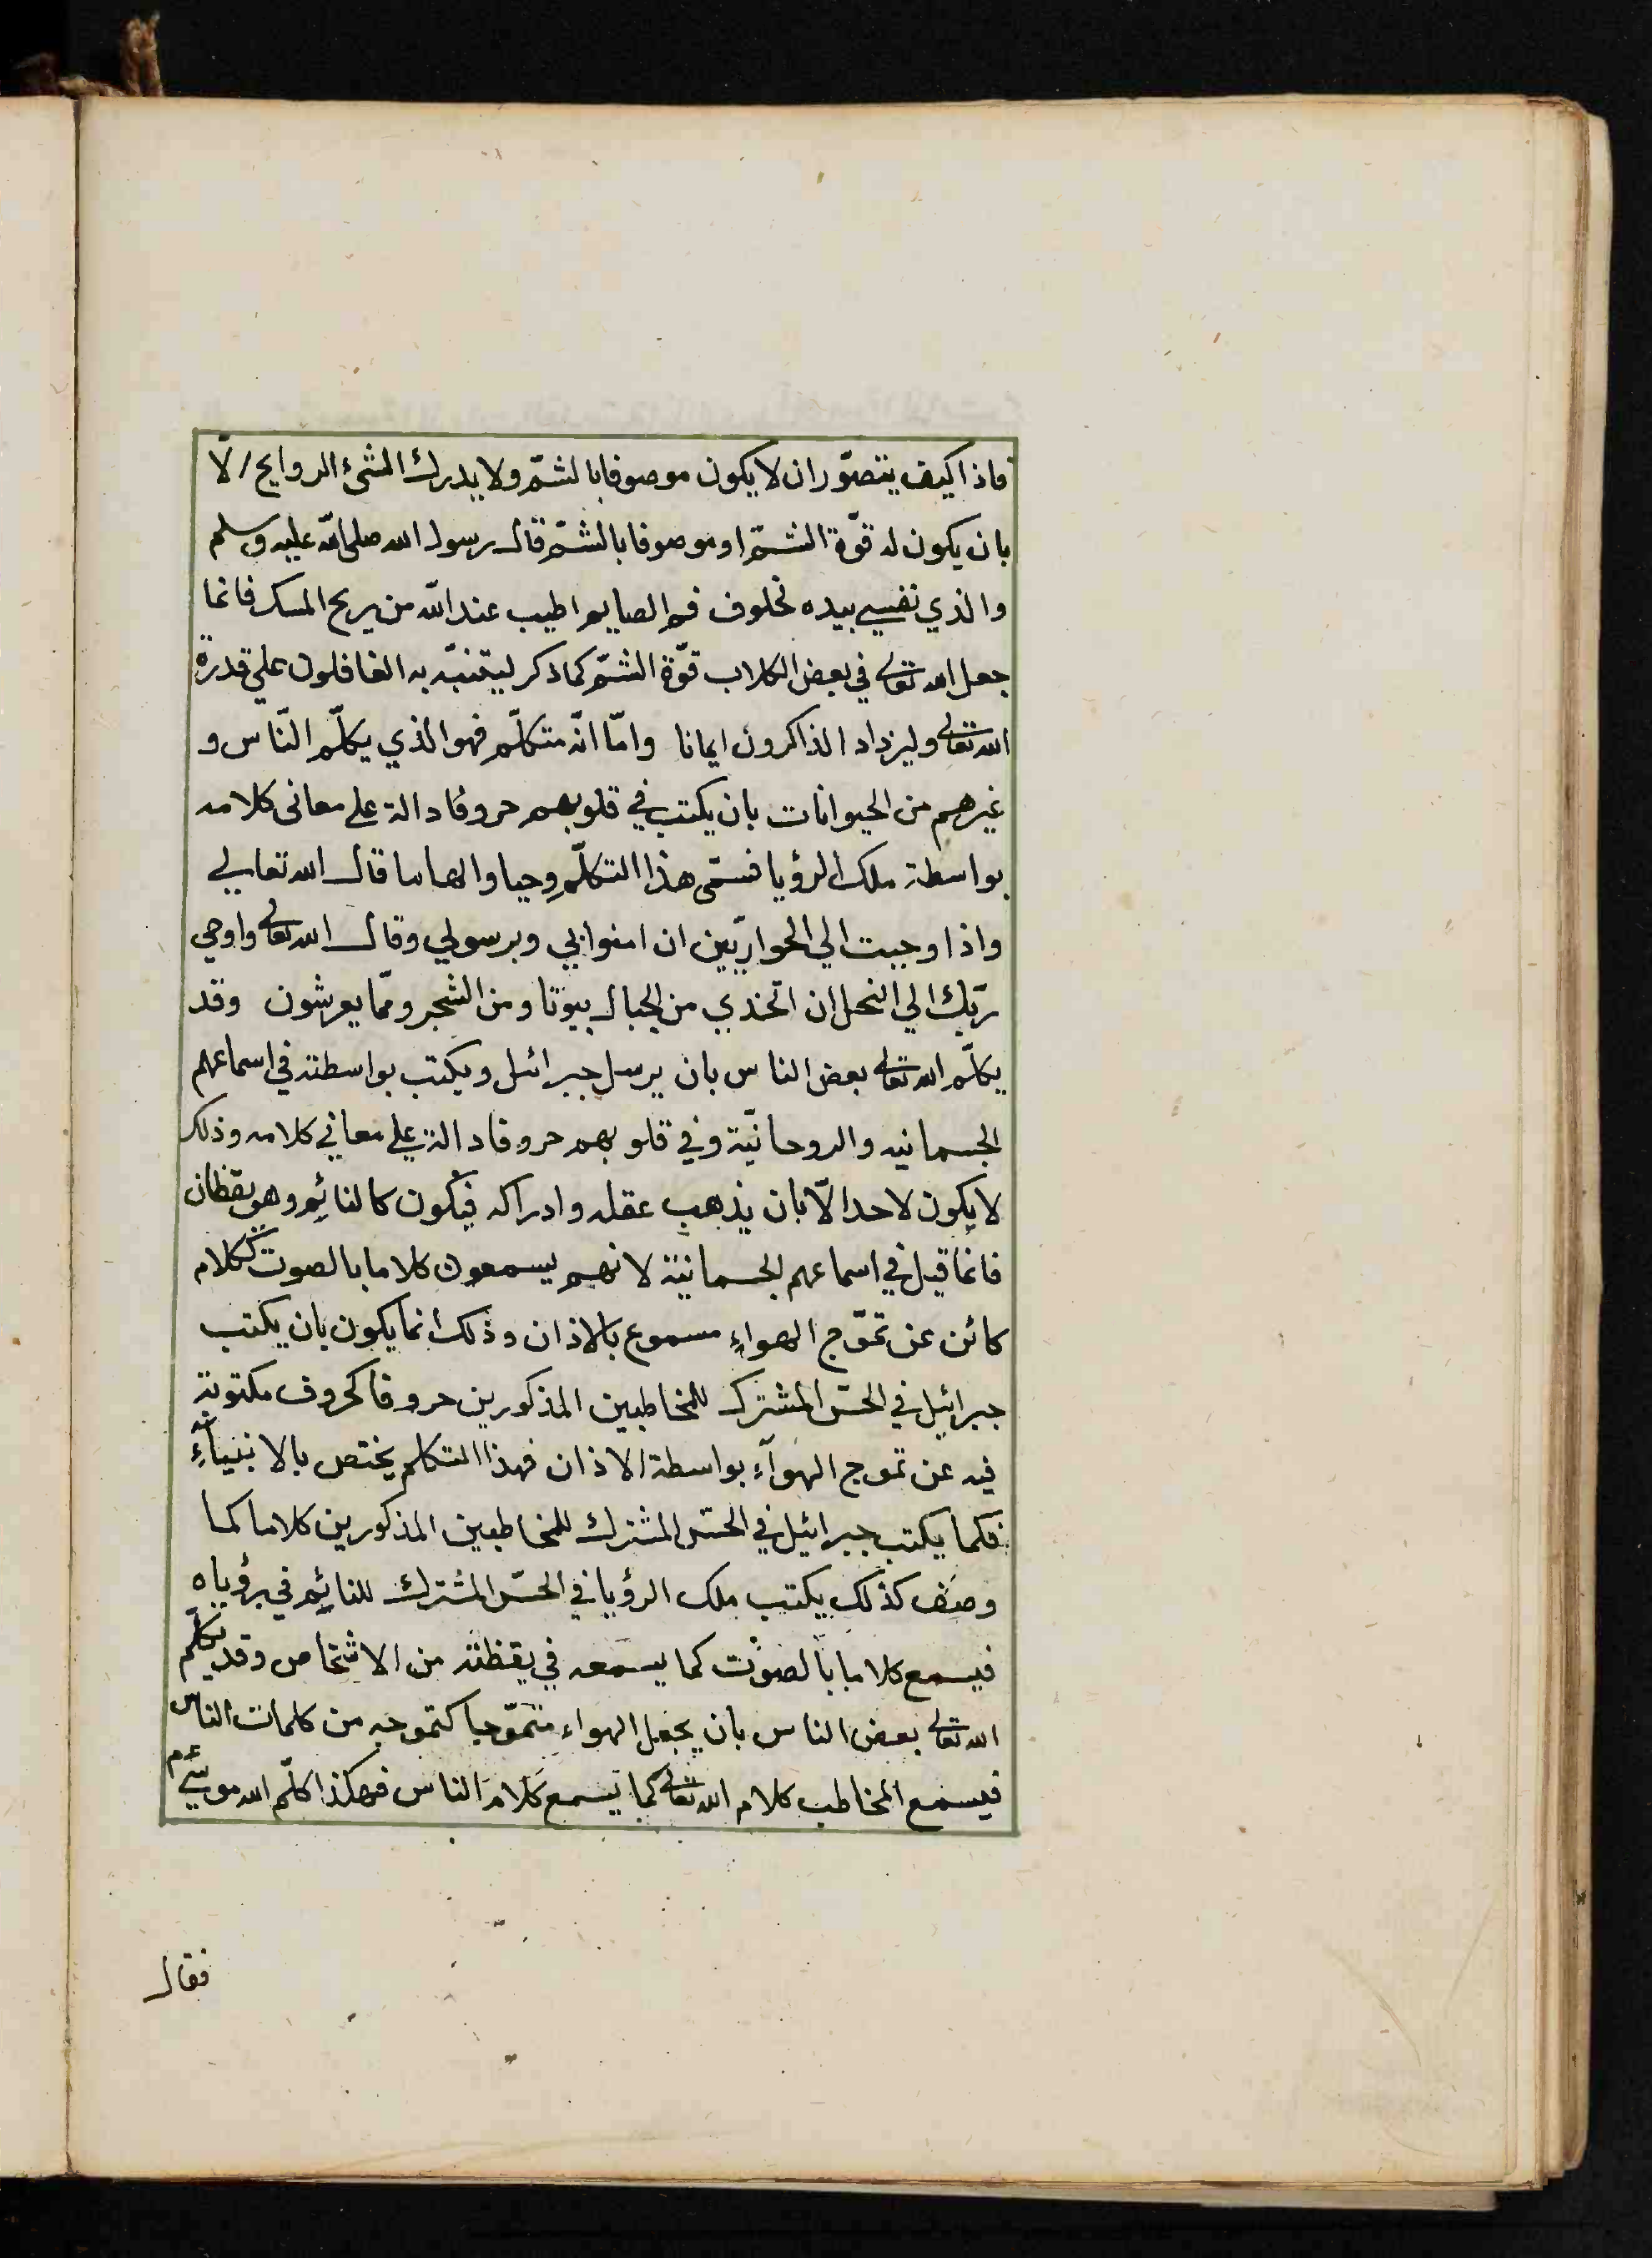 فاذا كيف يتصوّر ان لا يكون موصوفا بالشمّ ولا يدرك الشئ الروايح الّا
بان يكون له قوّة الشمّ او موصوفا بالشمّ قال رسول الله صلى الله عليه وسلم
والذي نفسي بيده لخلوف فم الصايم اطيب عند الله من ريح المسك فانما
جعل الله تعالى في بعض الكلاب قوّة الشمّ كما ذكر ليتنبّه به الغافلون علي قدرة
الله تعالى وليزداد الذاكرون ايمانا وامّا انّه متكلّم فهو الذي يكلّم النّاس و
غيرهم من الحيوانات بان يكتب في قلوبهم حروفا دالة على معانى كلامه
بواسطة ملك الرؤيا فسمّى هذا التكلّم وحيا والهاما قال الله تعالي
واذ اوحيت الي الحواريّين ان امنوا بي وبرسولي وقال الله تعالى واوحي
ربّك الي النحل ان اتخذي من الجبال بيوتا ومن الشجر وممّا يعرشون وقد
يكلّم الله تعالى بعض الناس بان يرسل جبرائيل ويكتب بواسطته في اسماعهم
الجسمانيه والروحانيّة وفي قلوبهم حروفا دالة علي معاني كلامه وذلك
لا يكون لاحد الّا بان يذهب عقله وادراكه فيكون كالنائم وهو يقظان
فانما قيل في اسماعهم الجسمانيّة لانهم يسمعون كلاما بالصوت ككلام
كائن عن تموّج الهواء مسموع بالاذان وذلك انما يكون بان يكتب
جبرائيل في الحسّ المشترك للمخاطبين المذكورين حروفا كحروف مكتوبة
فيه عن تموج الهوآء بواسطة الاذان فهذا التكلم يختص بالانبيآء
فكما يكتب جبرائيل في الحسّ المشترك للمخاطبين المذكورين كلاما كما
وصف كذلك يكتب ملك الرؤيا في الحسّ المشترك للنائم في رؤياه
فيسمع كلاما بالصوت كما يسمعه في يقظته من الاشخاص وقد يكلّم
الله تعالى بعض الناس بان يجعل الهواء متموّجا كتموجه من كلمات الناس
فيسمع المخاطب كلام الله تعالى كما يسمع كلام الناس فهكذا كلّم الله موسي عم
فقال